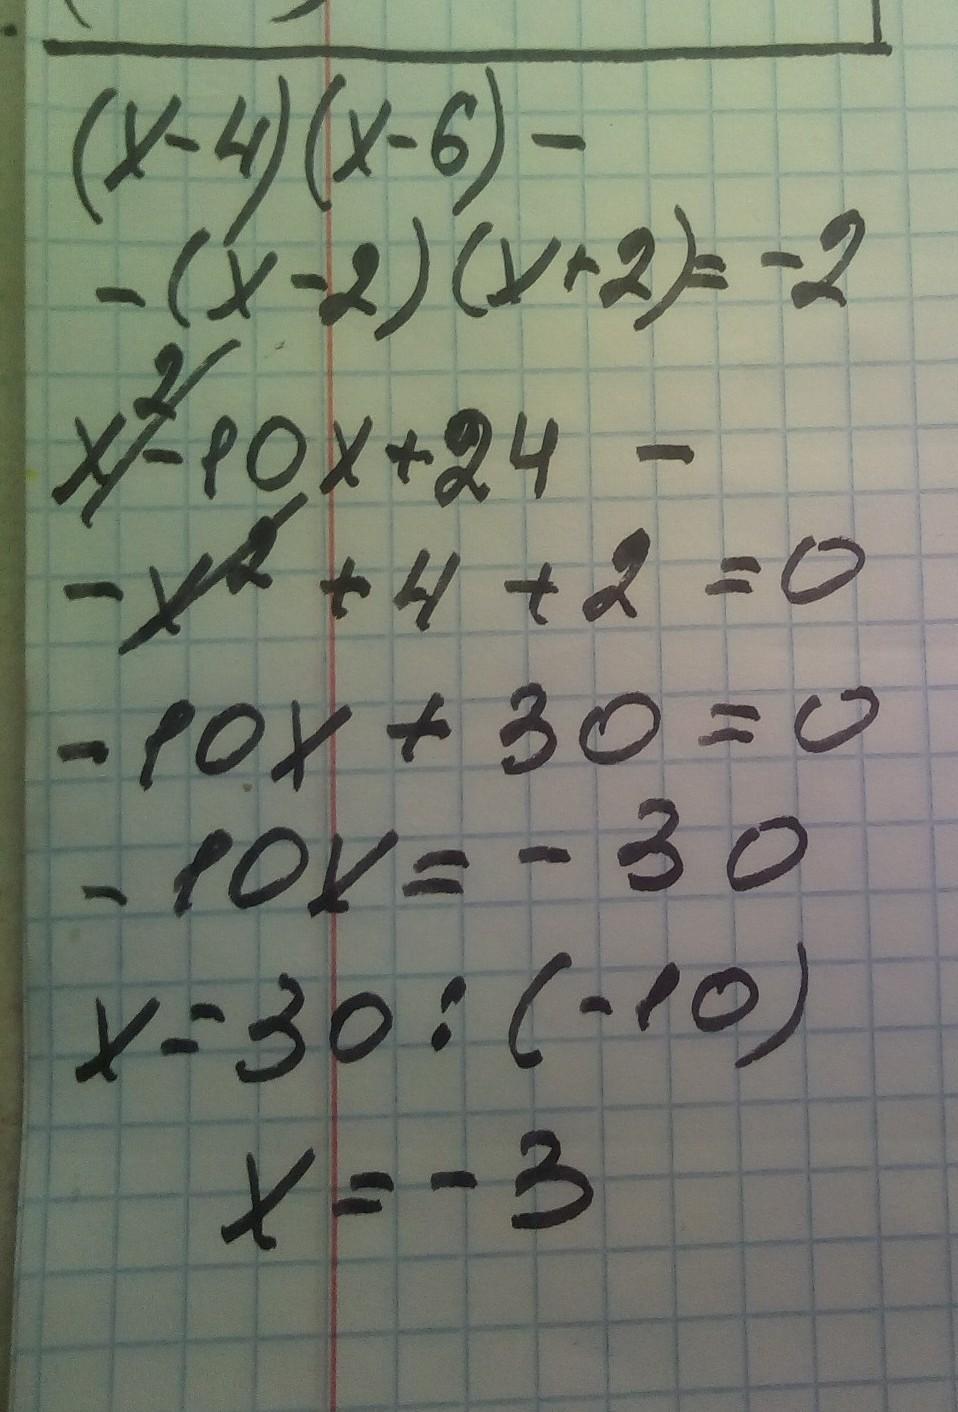 (x-4)(x-6) -
-(x-2)(x+2)= -2
x²-10x+24 -
-x² +4 +2 =0
-10x + 30 = 0
-10x = - 30
x = 30 : (-10)
x = - 3